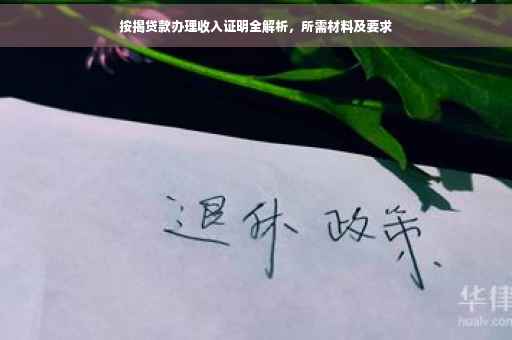 按揭贷款办理收入证明全解析，所需材料及要求
退休政策
华律
hualv.com